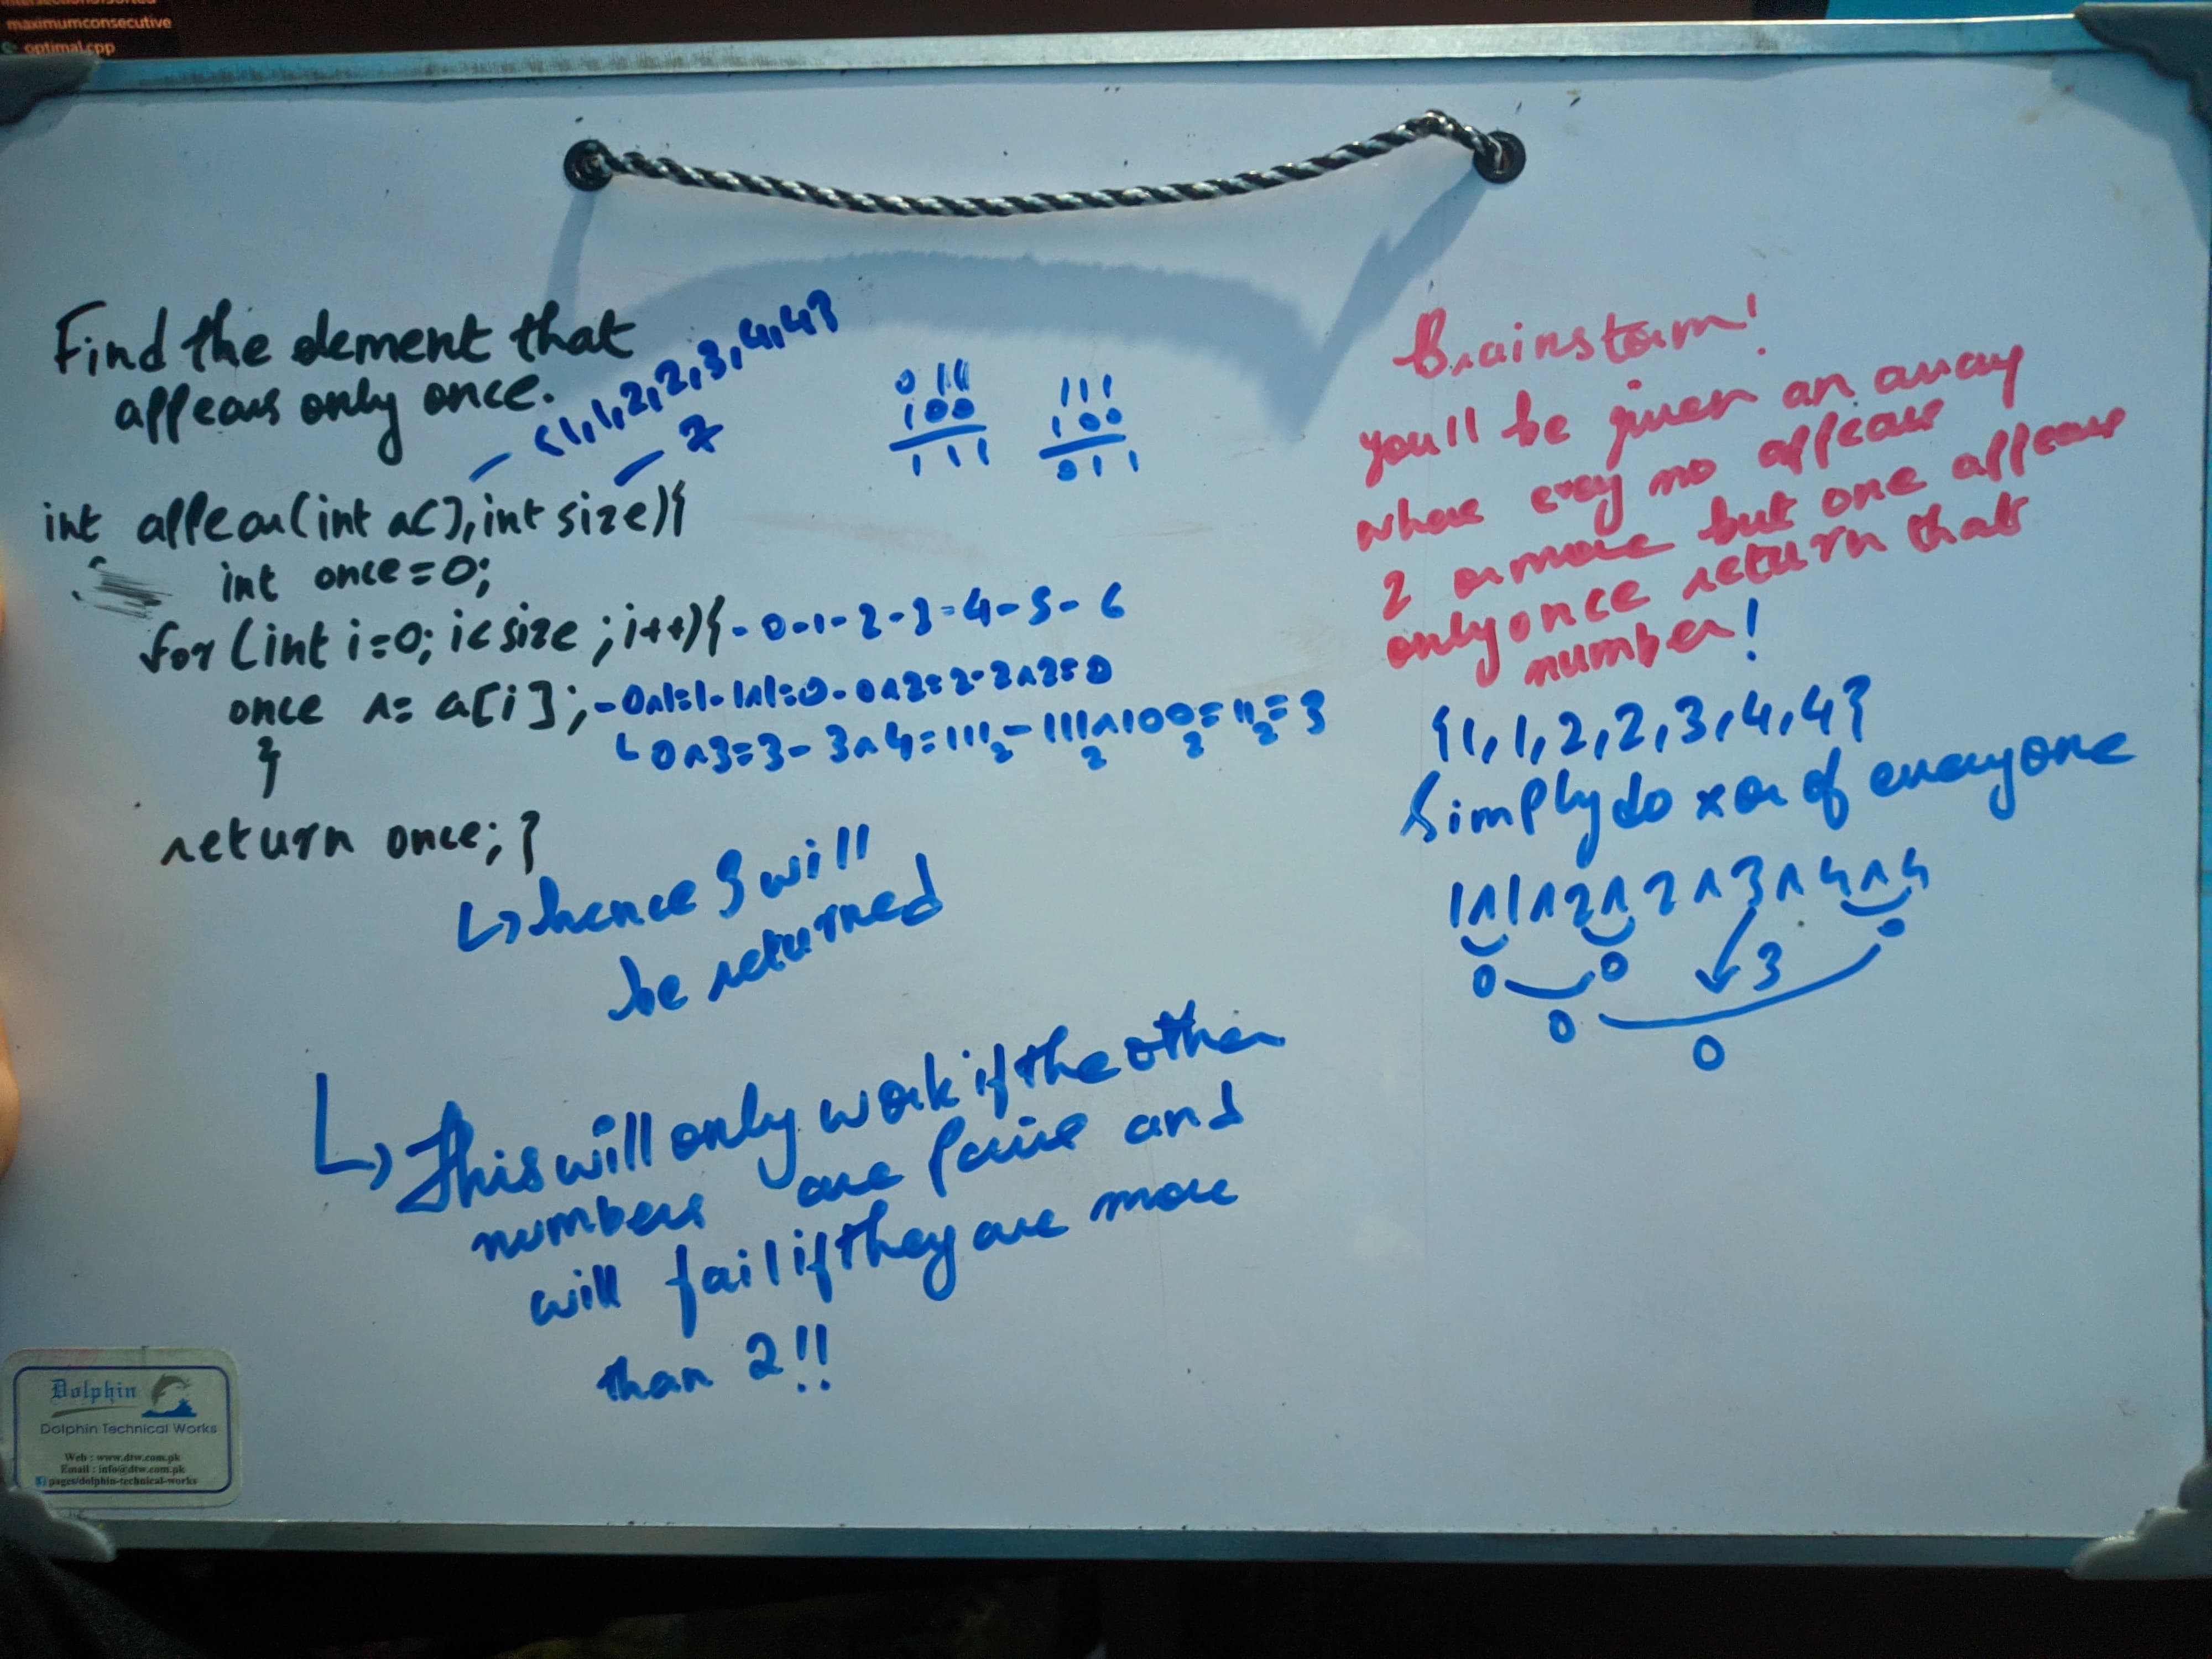 maximumconsecutive
optimal.cpp
Find the element that
appears only once.
{1,1,2,2,3,4,4}
7
int appear(int a[], int size){
int once=0;
for(int i=0; i<size; i++){ - 0-1-2-3-4-5-6
once ^= a[i]; - 0^1=1-1^1=0-0^2=2-2^2=0
↳ 0^3=3-3^4=111₂-111₂^100₂=11₂=3
}
return once; }
↳ hence 3 will
be returned
↳ This will only work if the other
numbers are pairs and
will fail if they are more
than 2!!
011
100
111
111
100
011
Brainstorm!
you'll be given an array
where every no appears
2 or more but one appears
only once return that
number!
{1,1,2,2,3,4,4}
Simply do xor of everyone
1^1^2^2^3^4^4
0 0 3
0
0
Dolphin
Dolphin Technical Works
Web : www.dtw.com.pk
Email : info@dtw.com.pk
pages/dolphin-technical-works